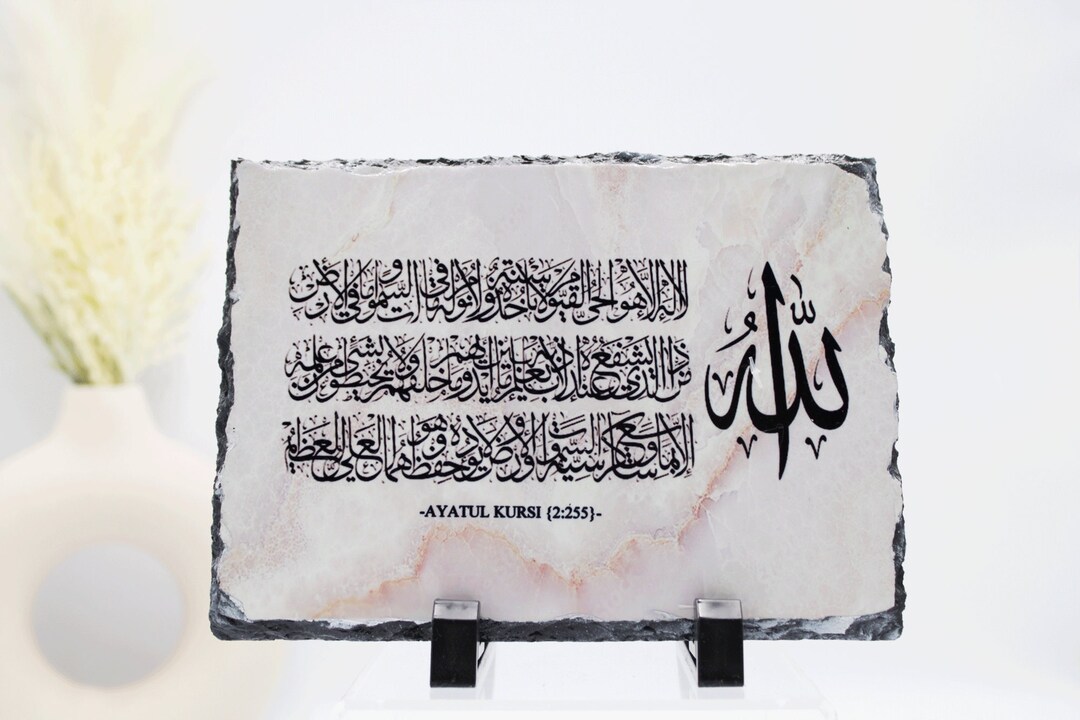 الله
لا إله إلا هو الحي القيوم لا تأخذه سنة ولا نوم له ما في السموات وما في الأرض
من ذا الذي يشفع عنده إلا بإذنه يعلم ما بين أيديهم وما خلفهم ولا يحيطون بشيء من علمه
إلا بما شاء وسع كرسيه السموات والأرض ولا يؤده حفظهما وهو العلي العظيم
-AYATUL KURSI {2:255}-